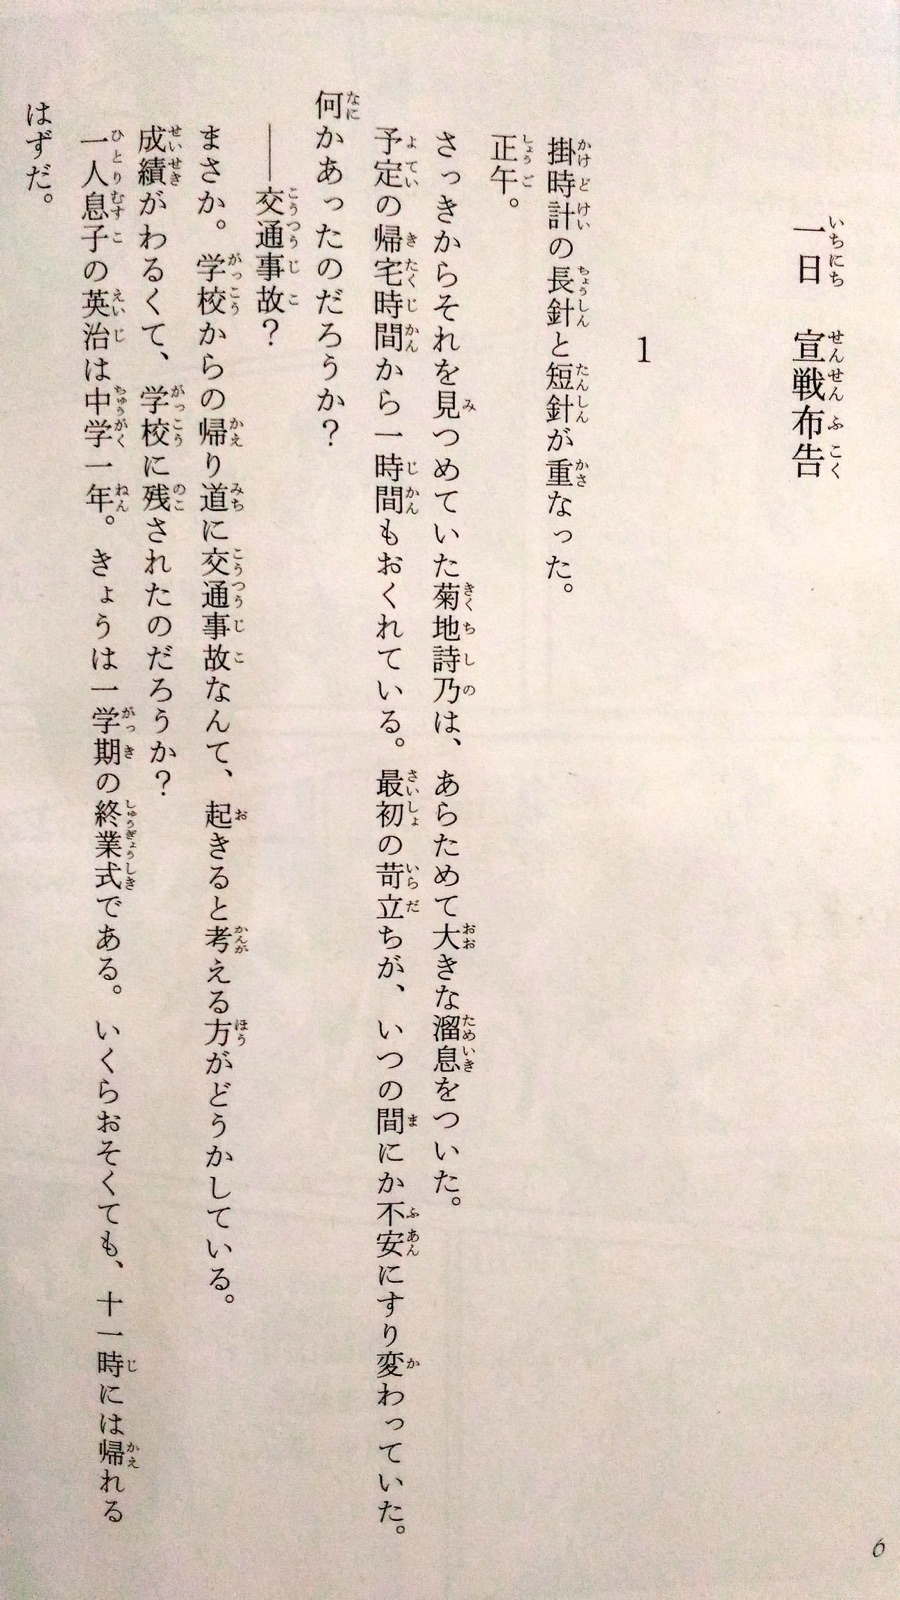 一日　宣戦布告
1
掛時計の長針と短針が重なった。
正午。
さっきからそれを見つめていた菊地詩乃は、あらためて大きな溜息をついた。
予定の帰宅時間から一時間もおくれている。最初の苛立ちが、いつの間にか不安にすり変わっていた。
何かあったのだろうか？
――交通事故？
まさか。学校からの帰り道に交通事故なんて、起きると考える方がどうかしている。
成績がわるくて、学校に残されたのだろうか？
一人息子の英治は中学一年。きょうは一学期の終業式である。いくらおそくても、十一時には帰れる
はずだ。
6